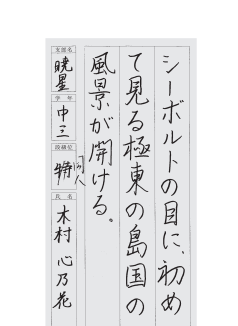 シーボルトの目に、初め
て見る極東の島国の
風景が開ける。
支部名
暁星
学年
中三
段級位
特
氏名
木村 心乃花